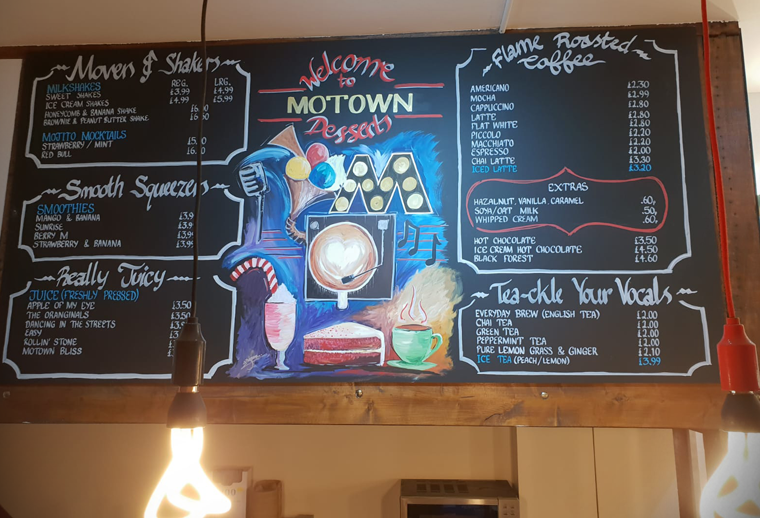 Movers & Shakers
REG. LRG.
MILKSHAKES
SWEET SHAKES £3.99 £4.99
ICE CREAM SHAKES £4.99 £5.99
HONEYCOMB & BANANA SHAKE
BROWNIE & PEANUT BUTTER SHAKE
MOJITO MOCKTAILS
STRAWBERRY / MINT
RED BULL
Smooth Squeezers
SMOOTHIES
MANGO & BANANA
SUNRISE
BERRY M
STRAWBERRY & BANANA
Really Juicy
JUICE (FRESHLY PRESSED)
APPLE OF MY EYE £3.50
THE ORANGINALS £3.50
DANCING IN THE STREETS
EASY
ROLLIN' STONE
MOTOWN BLISS
Welcome
to
MO'TOWN
Desserts
M
Flame Roasted
Coffee
AMERICANO £2.30
MOCHA £2.99
CAPPUCCINO £2.80
LATTE £2.80
FLAT WHITE £2.80
PICCOLO £2.20
MACCHIATO £2.20
ESPRESSO £2.00
CHAI LATTE £3.30
ICED LATTE £3.20
EXTRAS
HAZALNUT, VANILLA, CARAMEL .60p
SOYA/OAT MILK .50p
WHIPPED CREAM .60p
HOT CHOCOLATE £3.50
ICE CREAM HOT CHOCOLATE £4.50
BLACK FOREST £4.60
Tea-ckle Your Vocals
EVERYDAY BREW (ENGLISH TEA) £2.00
CHAI TEA £2.00
GREEN TEA £2.00
PEPPERMINT TEA £2.00
PURE LEMON GRASS & GINGER £2.10
ICE TEA (PEACH/LEMON) £3.99